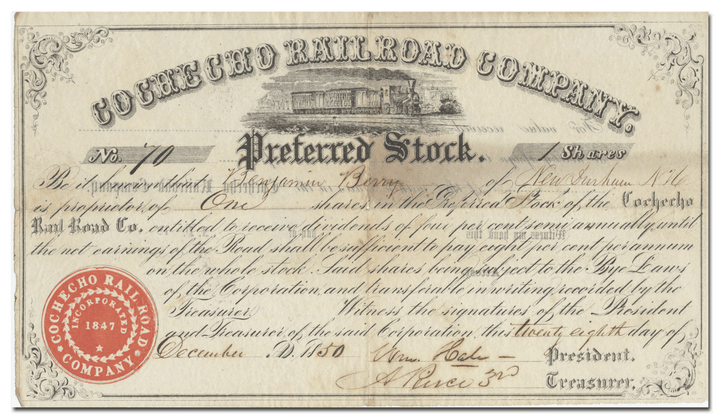 COCHECHO RAILROAD COMPANY.
No. 70 Preferred Stock. 1 Shares
Be it known that Benjamin Berry of New Durham N.H.
is proprietor of One shares in the Preferred Stock of the Cochecho
Rail Road Co. entitled to receive dividends of four per cent semi annually, until
the net earnings of the Road shall be sufficient to pay eight per cent per annum
on the whole stock. Said shares being subject to the Bye Laws
of the Corporation and transferable in writing recorded by the
Treasurer Witness the signatures of the President
and Treasurer of the said Corporation, this twenty eighth day of
December A.D. 1850 Wm. Hale President.
Treasurer.
COCHECHO RAIL ROAD COMPANY
INCORPORATED
1847